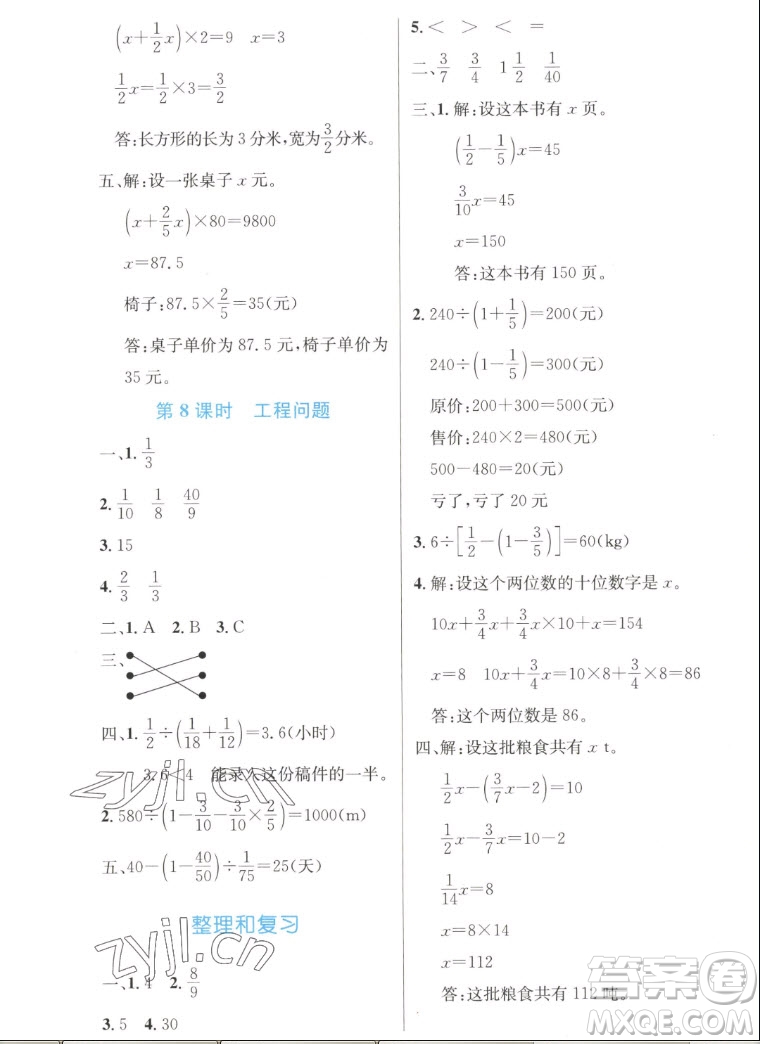 (x+1/2x)×2=9 x=3
1/2x=1/2×3=3/2
答:长方形的长为3分米,宽为3/2分米。
五、解:设一张桌子x元。
(x+2/5x)×80=9800
x=87.5
椅子:87.5×2/5=35(元)
答:桌子单价为87.5元,椅子单价为
35元。
第8课时 工程问题
一、1. 1/3
2. 1/10 1/8 40/9
3. 15
4. 2/3 1/3
二、1. A 2. B 3. C
三、
四、1. 1/2÷(1/18+1/12)=3.6(小时)
3.6<4 能录入这份稿件的一半。
2. 580÷(1-3/10-3/10×2/5)=1000(m)
五、40-(1-40/50)÷1/75=25(天)
整理和复习
一、1. 4 2. 8/9
3. 5 4. 30
5. < > < =
二、3/7 3/4 1 1/2 1/40
三、1. 解:设这本书有x页。
(1/2-1/5)x=45
3/10x=45
x=150
答:这本书有150页。
2. 240÷(1+1/5)=200(元)
240÷(1-1/5)=300(元)
原价:200+300=500(元)
售价:240×2=480(元)
500-480=20(元)
亏了,亏了20元
3. 6÷[1/2-(1-3/5)]=60(kg)
4. 解:设这个两位数的十位数字是x。
10x+3/4x+3/4x×10+x=154
x=8 10x+3/4x=10×8+3/4×8=86
答:这个两位数是86。
四、解:设这批粮食共有x t。
1/2x-(3/7x-2)=10
1/2x-3/7x=10-2
1/14x=8
x=8×14
x=112
答:这批粮食共有112吨。
zyjl.cn
zyjl.cn
答案圈
MXQE.COM